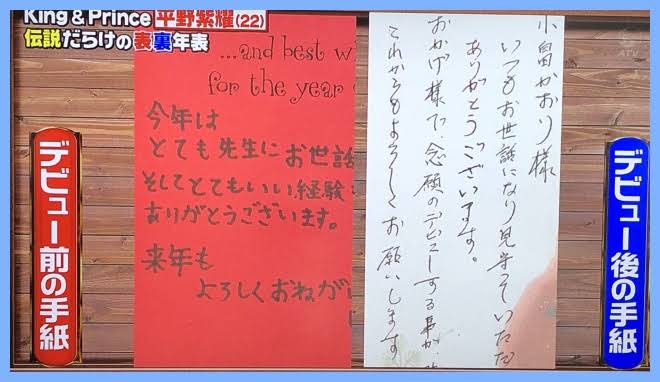 King & Prince 平野紫耀(22)
伝説だらけの表裏年表
デビュー前の手紙
...and best w
for the year
今年は
とても先生にお世話
そしてとてもいい経験
ありがとうございます。
来年も
よろしくおねが
小畠かおり様
いつもお世話になり見守っていただ
ありがとうございます。
おかげ様で念願のデビューする事が
これからもよろしくお願いします
デビュー後の手紙
ATV